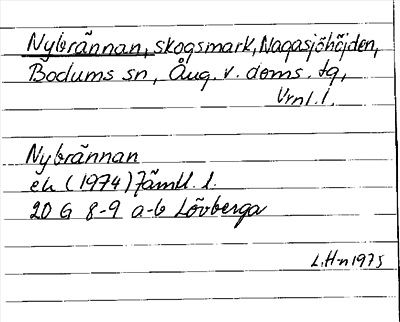 Nybrännan, skogsmark, Nagasjöhöjden,
Bodums sn, Ång. v. doms. tg,
Vrnl. l.
Nybrännan
ek (1974) Jämtl. l.
20 G 8-9 a-b Lövberga
L.H-n 1975